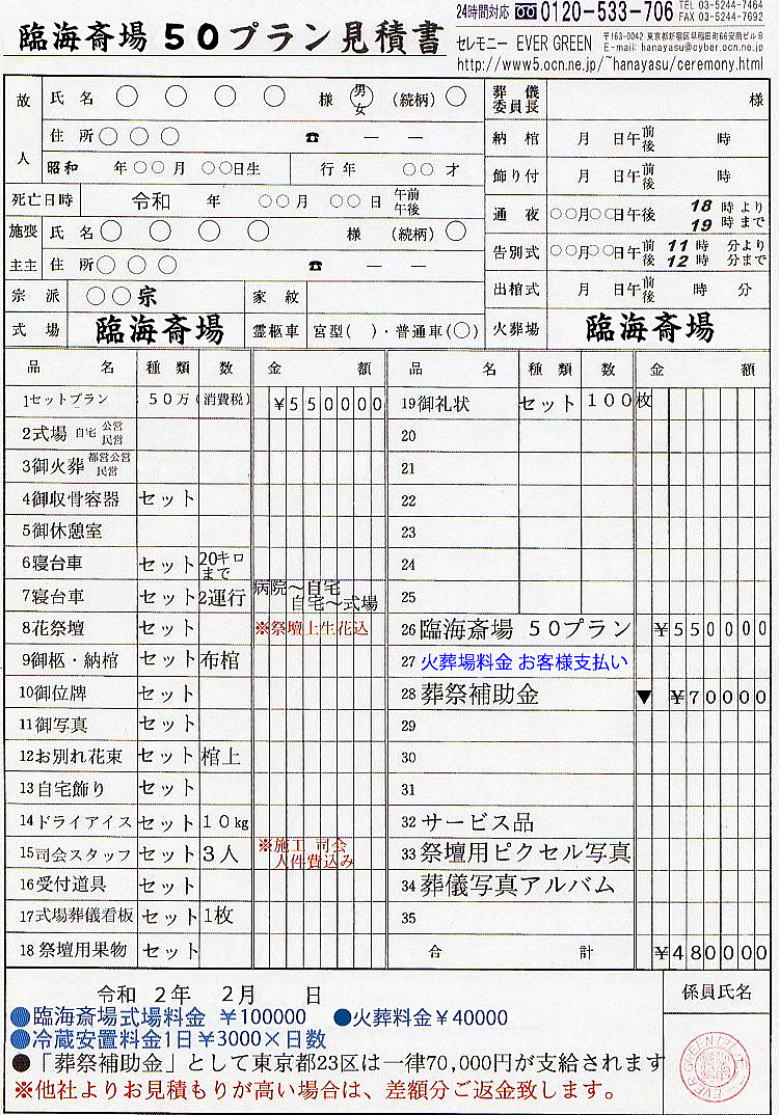 臨海斎場50プラン見積書
24時間対応 0120-533-706 TEL 03-5244-7464
FAX 03-5244-7692
セレモニー EVER GREEN 〒163-0042 東京都新宿区早稲田町66安商ビル8
E-mail: hanayasu@cyber.ocn.ne.jp
http://www5.ocn.ne.jp/~hanayasu/ceremony.html
故人 氏名 ○ ○ ○ ○ 様 男 女 (続柄) ○
住所 ○ ○ ○ ☎ ― ―
昭和 年○○月 ○○日生 行年 ○○才
死亡日時 令和 年 ○○月 ○○日 午前 午後
施主 喪主 氏名 ○ ○ ○ ○ 様 (続柄) ○
住所 ○ ○ ○ ☎ ― ―
宗派 ○○宗 家紋
式場 臨海斎場 霊柩車 宮型( )・普通車(○)
葬儀委員長 様
納棺 月 日午前後 時
飾り付 月 日午前後 時
通夜 ○○月○○日午後 18時より 19時まで
告別式 ○○月○○日午前後 11時 分より 12時 分まで
出棺式 月 日午前後 時 分
火葬場 臨海斎場
品名 種類 数 金額
1セットプラン 50万(消費税) ¥550000
2式場 自宅 公営 民営
3御火葬 都営公営 民営
4御収骨容器 セット
5御休憩室
6寝台車 セット 20キロまで
7寝台車 セット 2運行 病院〜自宅 自宅〜式場
8花祭壇 セット ※祭壇上生花込
9御柩・納棺 セット 布棺
10御位牌 セット
11御写真 セット
12お別れ花束 セット 棺上
13自宅飾り セット
14ドライアイス セット 10kg
15司会スタッフ セット 3人 ※施工 司会 人件費込み
16受付道具 セット
17式場葬儀看板 セット 1枚
18祭壇用果物 セット
品名 種類 数 金額
19御礼状 セット 100枚
20
21
22
23
24
25
26臨海斎場 50プラン ¥550000
27火葬場料金 お客様支払い
28葬祭補助金 ▼ ¥70000
29
30
31
32サービス品
33祭壇用ピクセル写真
34葬儀写真アルバム
35
合計 ¥480000
令和 2年 2月 日
●臨海斎場式場料金 ¥100000 ●火葬料金¥40000
●冷蔵安置料金1日¥3000×日数
●「葬祭補助金」として東京都23区は一律70,000円が支給されます
※他社よりお見積もりが高い場合は、差額分ご返金致します。
係員氏名